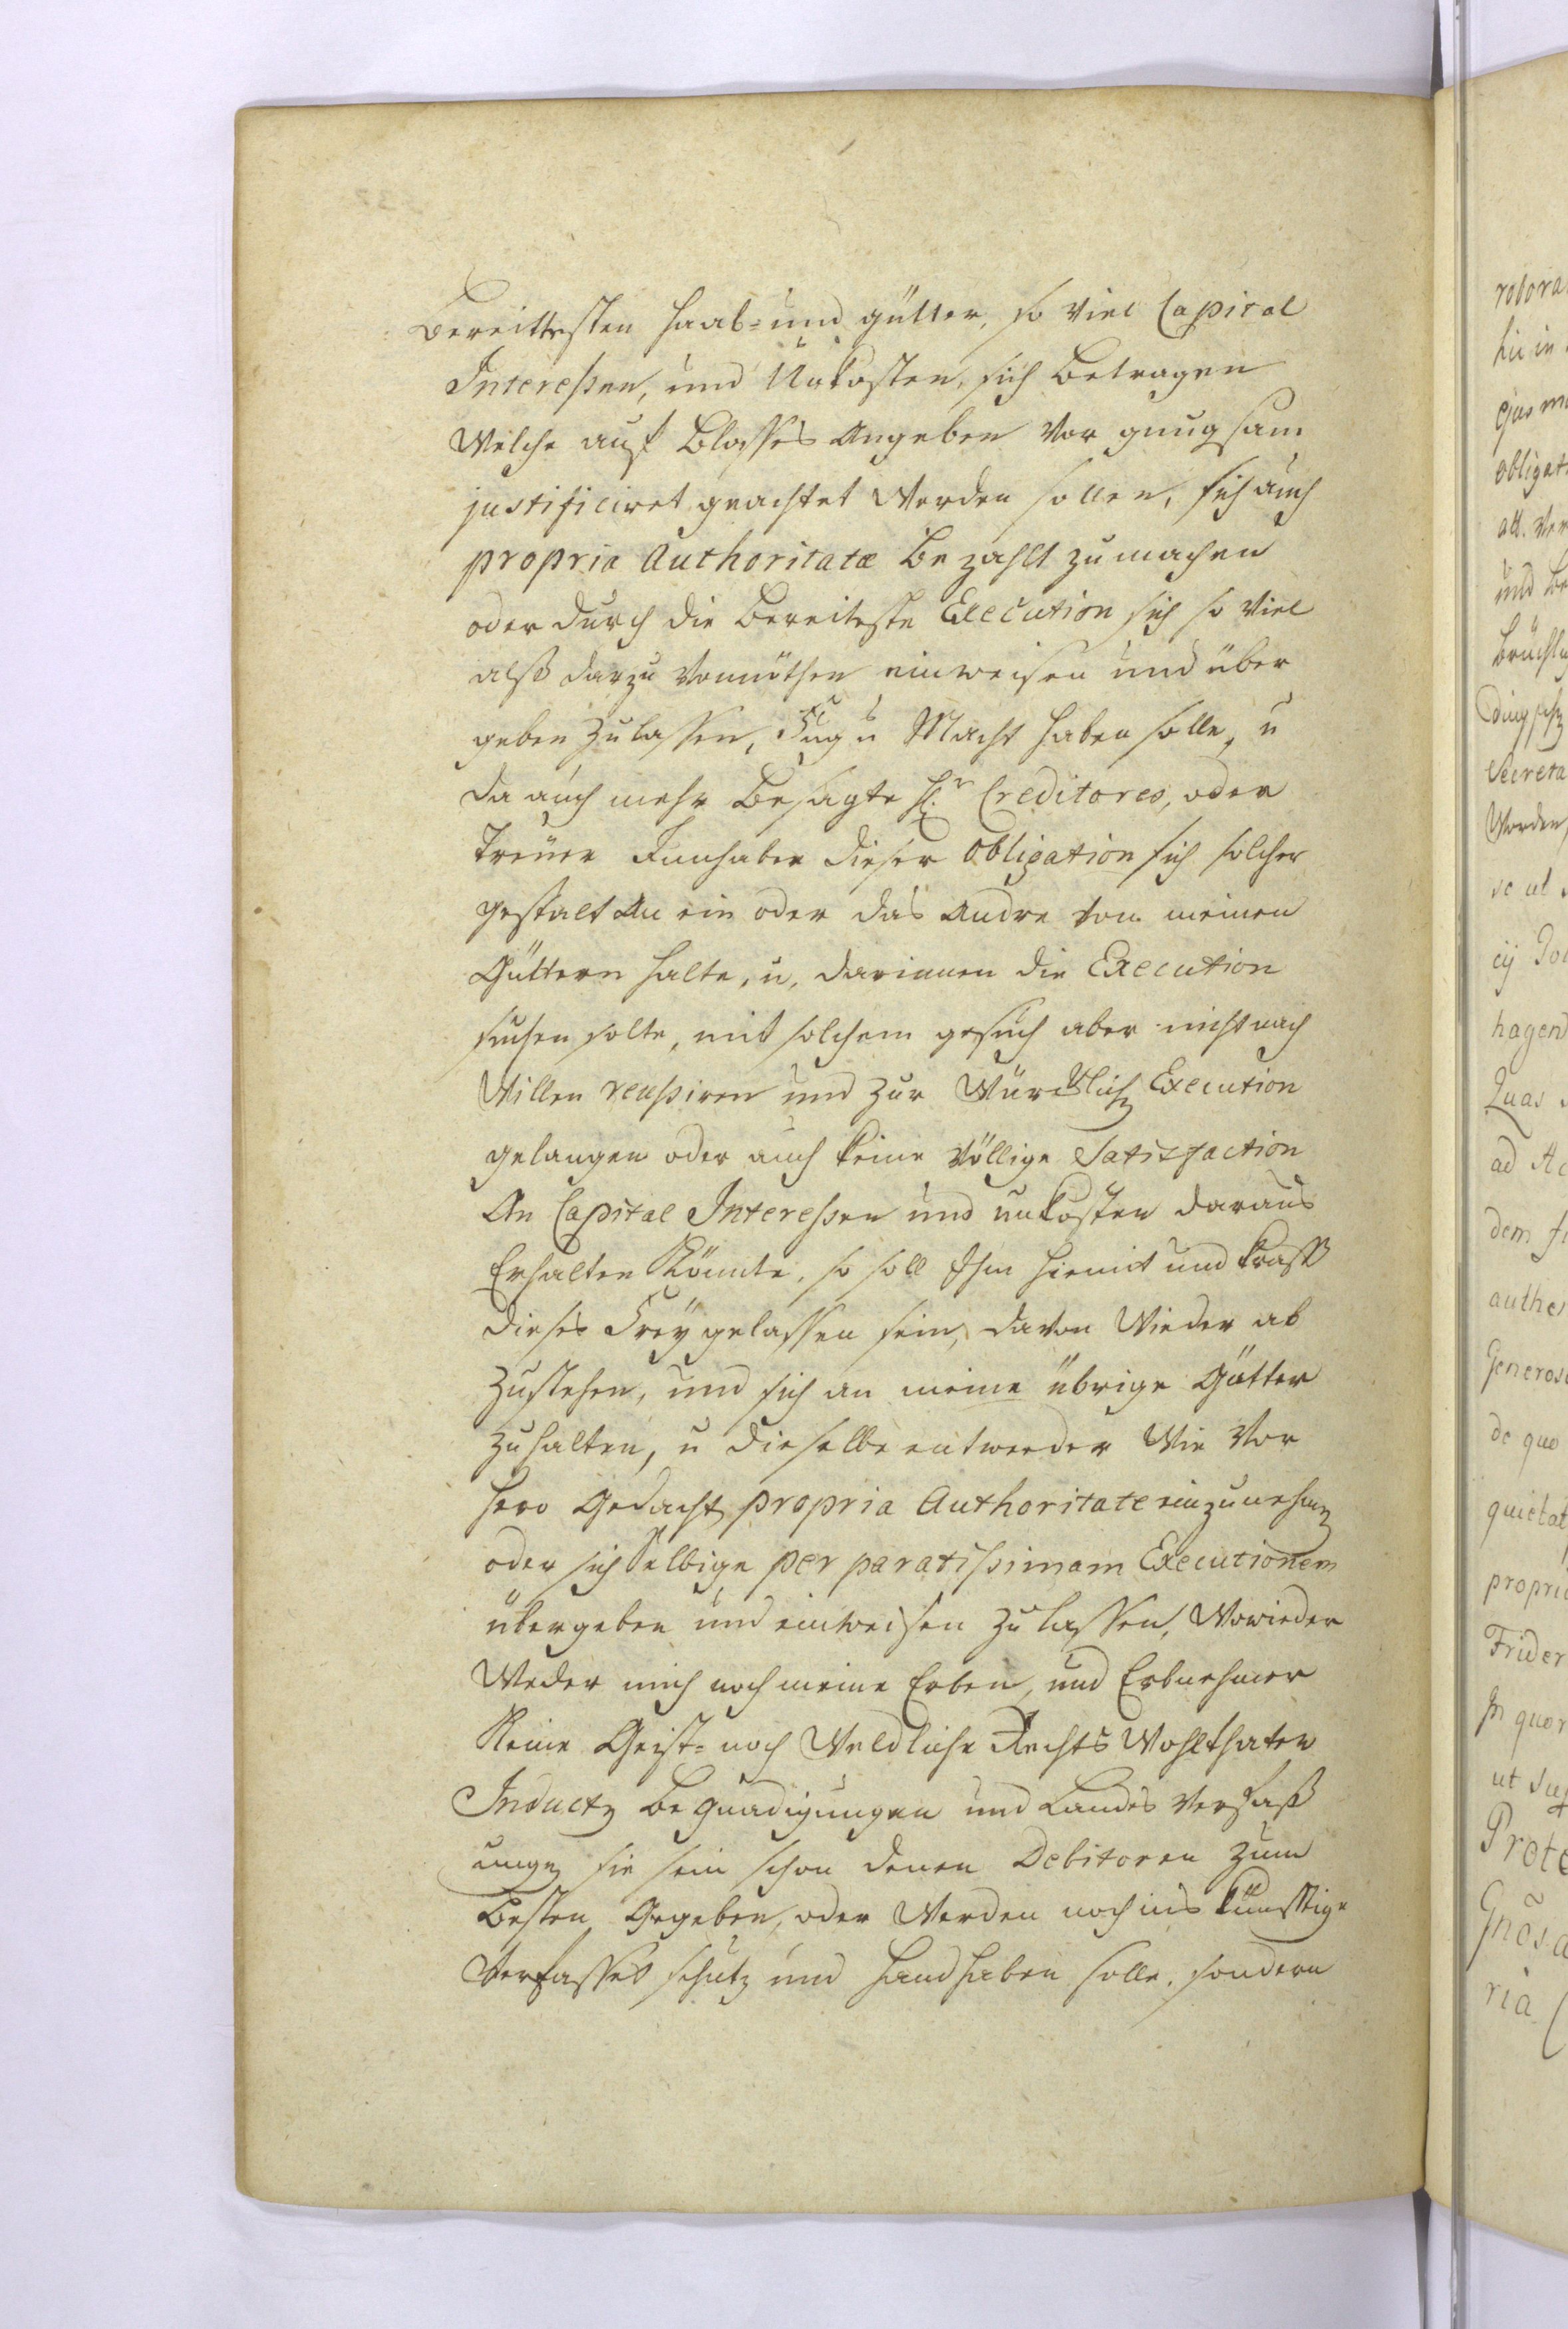 Bereittesten Haab- und gütter, so viel Capital
Interessen, und Unkosten, sich betragen
Welche auf blosses Angeben vor gnugsam
justificiret geachtet werden sollen, sich auch
propria Authoritatæ bezahlt zumachen
oder durch die bereiteste Execution sich so viel
alß darzu vonnöthen einweisen und über
geben zulassen, Fug u Macht haben solle, u
da auch mehr besagte H.r Creditores, oder
treuer Innhaber dieser obligation sich solcher
gestalt An ein oder das Andre von meinen
Güttern halte, u, darinnen die Execution
suchen solte, mit solchem gesuch aber nicht nach
Willen reussiren und zur Würcklich Execution
gelangen oder auch keine völlige Satisfaction
An Capital Interessen und unkosten daraus
Erhalten Könnte, so soll Ihm hiemit und krafft
dieses Freygelassen sein, davon Wieder ab
zustehen, und sich an meine übrige Götter
zuhalten, u dieselbe entweder Wie Vor
hero Gedacht propria Authoritate einzunehmen
oder sich selbige per paratissimam Executionem
übergeben und einweisen zulassen, Wowieder
Weder mich noch meine Erben, und Erbnehmer
Keine Geist- noch Weldliche Rechts Wohlthaten
Inducten begnadigungen und Landes Verfaß
ungen sie sein schon denen Debitoren zum
besten Gegeben, oder Werden noch ins künfftige
Verfasset schutz und handhaben solle, sondern
robora
hii in
ejus m
obligat
und be
Secreta
Worden,
se ut
hagend
Quas
ad Ac
authe
Generos
de quo
quietat
propri
Frider
In quor
ut Su
Prote
Gños.a
ria